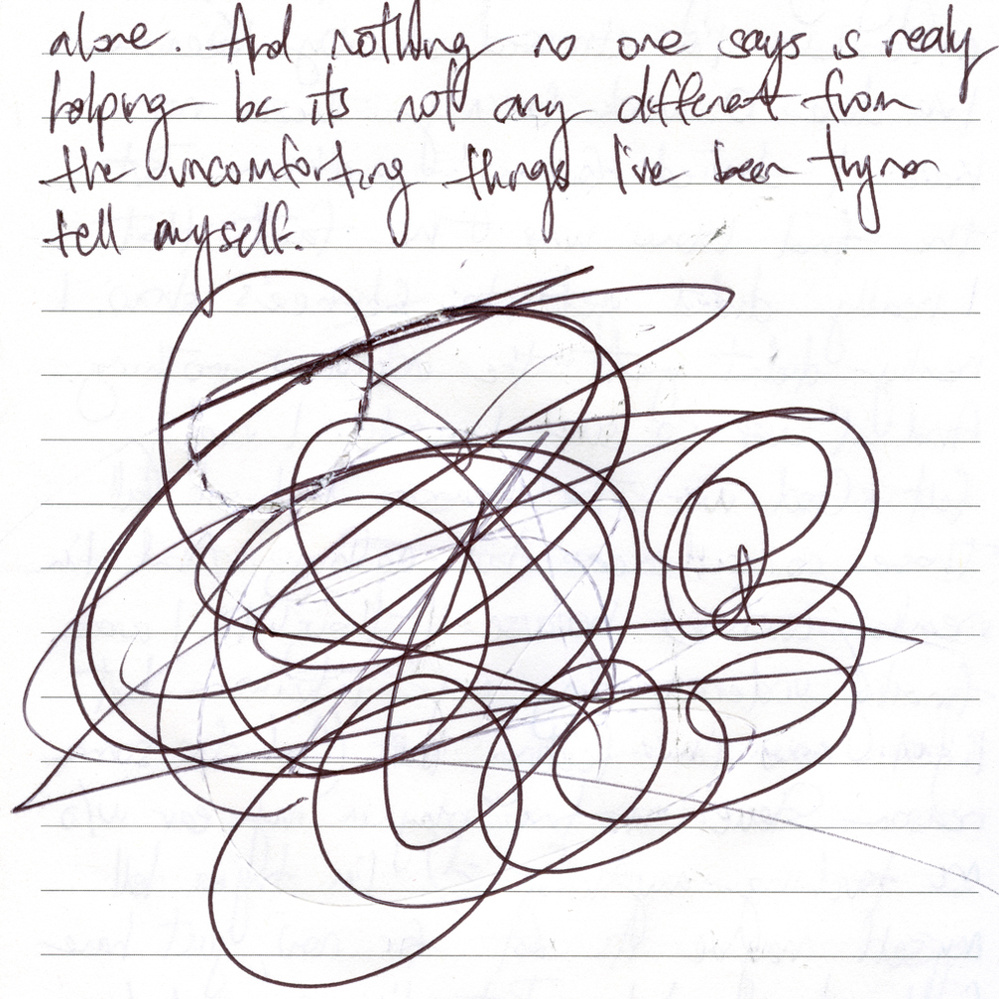 alone. And nothing no one says is realy
helping bc its not any different from
the uncomforting things I've been tryna
tell myself.